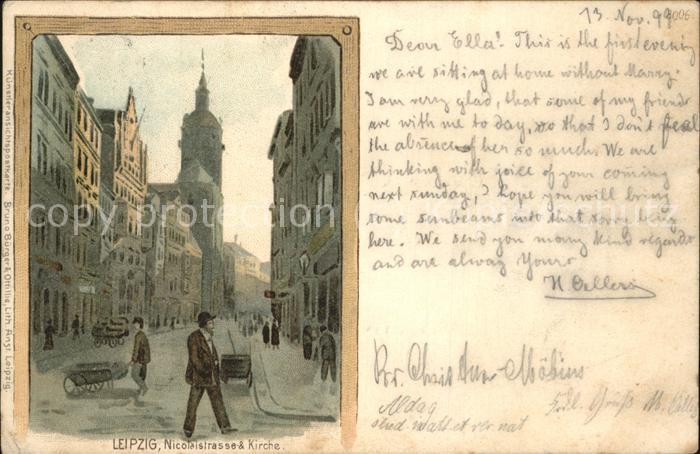 13. Nov. 99
Dear Ella! This is the first evening
we are sitting at home without Marry.
I am very glad, that some of my friends
are with me to day, so that I don't feel
the absence of her so much. We are
thinking with joice of your coming
next sunday, I hope you will bring
some sunbeans into that sorry day
here. We send you many kind regards
and are alway Yours
Künstleransichtspostkarte. Bruno Bürger & Ottillie, Lith. Anst. Leipzig.
copy protection
LEIPZIG, Nicolaistrasse & Kirche.